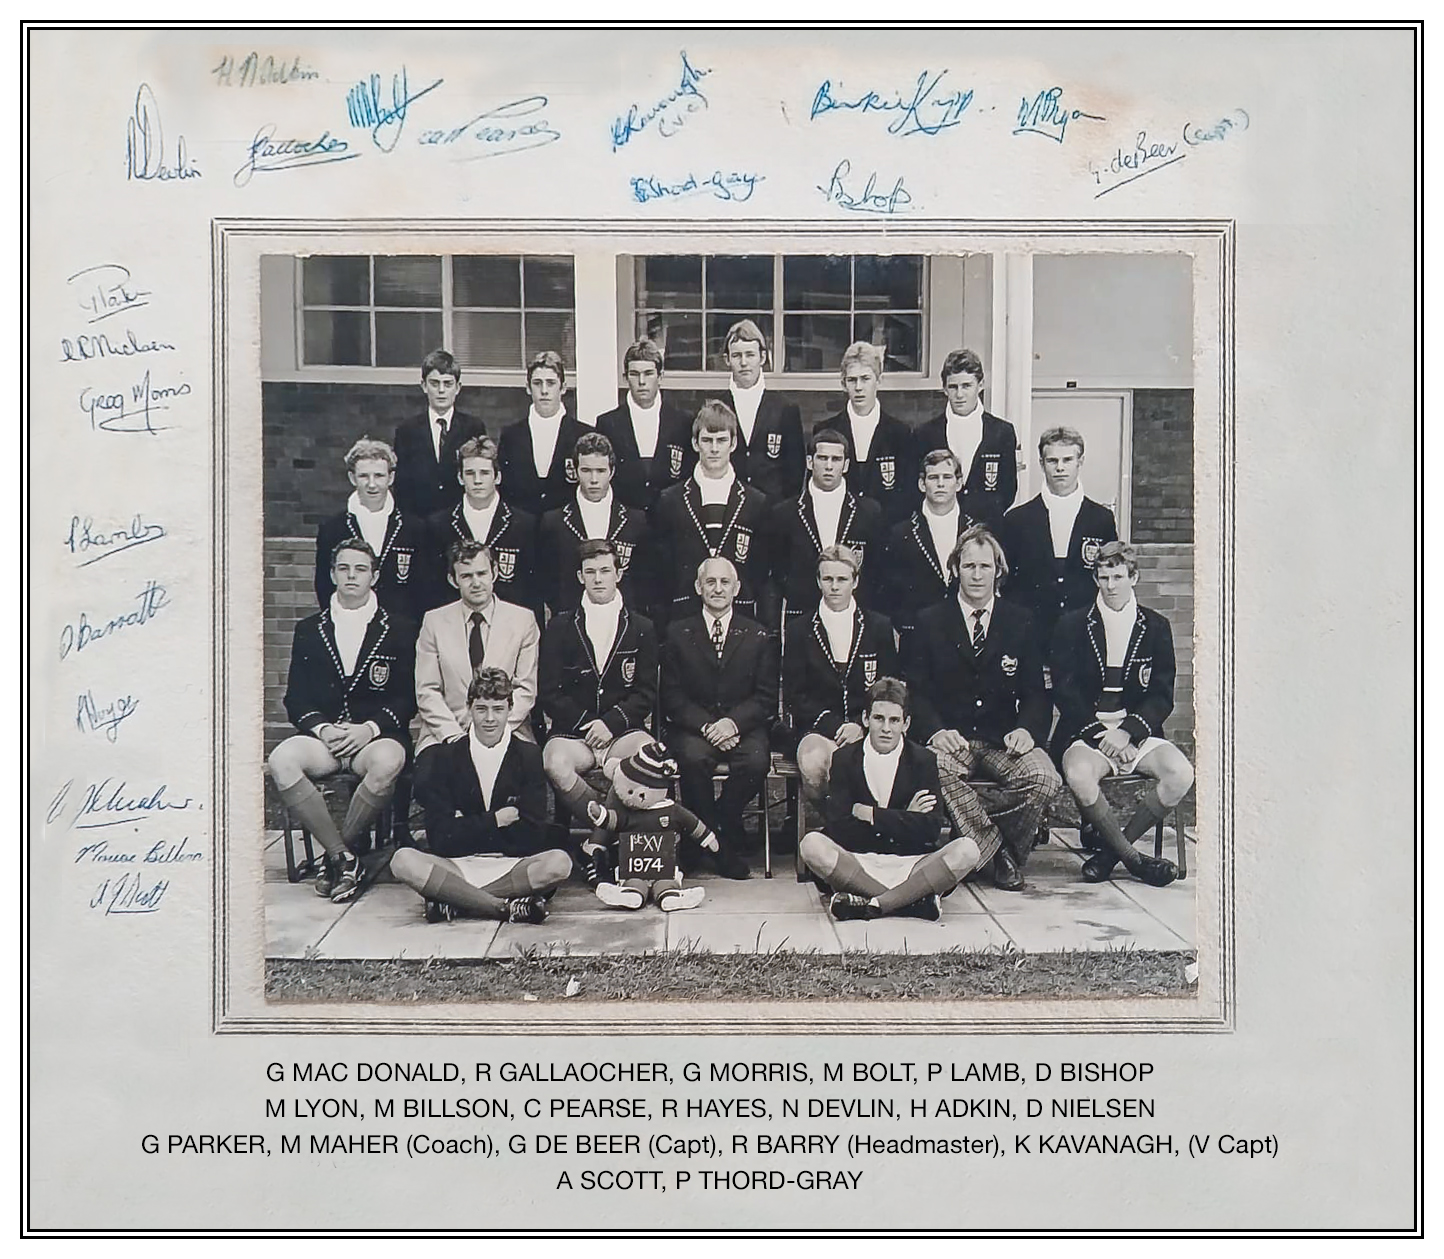 H N Adkin.
NDevlin
Gallaocher
MMBolt
Pearse
KKavanagh
(V.C)
M Ryan
G. deBeer (Capt.)
Thord-gray
Bishop
Greg Morris
PLamb
Barratt
Billson
A Scott
1st XV
1974
G MAC DONALD, R GALLAOCHER, G MORRIS, M BOLT, P LAMB, D BISHOP
M LYON, M BILLSON, C PEARSE, R HAYES, N DEVLIN, H ADKIN, D NIELSEN
G PARKER, M MAHER (Coach), G DE BEER (Capt), R BARRY (Headmaster), K KAVANAGH, (V Capt)
A SCOTT, P THORD-GRAY